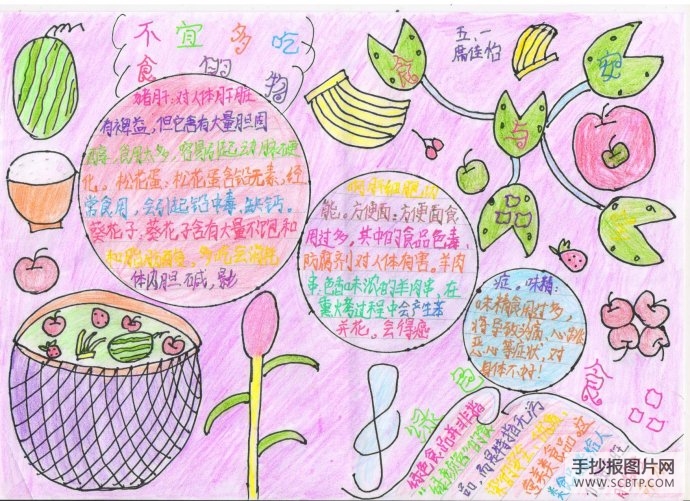 不宜多吃
食的物
五、一
席佳怡
食
与
猪肝:对人体肝脏
有裨益,但它含有大量胆固
醇,食用太多,容易引起动脉硬
化。松花蛋:松花蛋含铅元素,经
常食用,会引起铅中毒,缺钙。
葵花子:葵花子含有大量不饱和
体内胆碱,影
响肝细胞功
能。方便面:方便面食
用过多,其中的食品色素,
防腐剂对人体有害。羊肉
串,色香味浓的羊肉串,在
熏烤过程中会产生苯
并芘。会得癌
症,味精:
味精食用过多,
将导致头痛,心跳
恶心等症状,对
身体不好!
绿色
食
绿色食品并非指
品,而是特指无污
手抄报图片网
WWW.SCBTP.COM